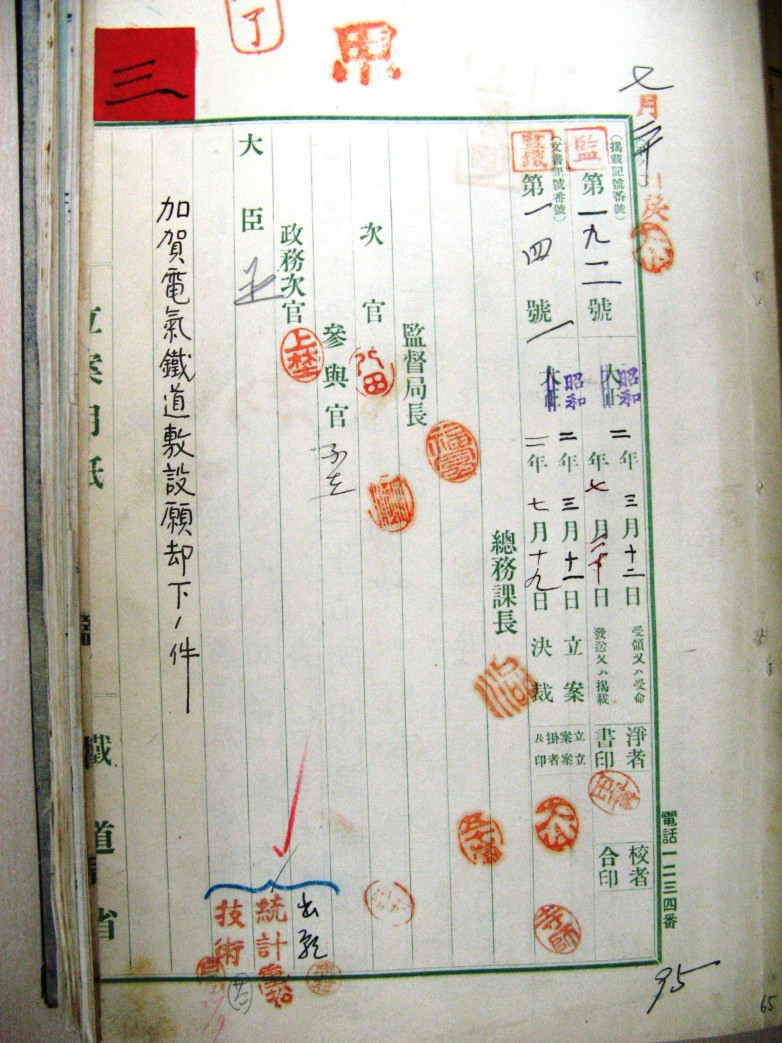 了
三
七月
(揭載記號番號)
監 第一九二號
昭和 二年 三月十二日 受領又ハ受命
年七月二十日 發送又ハ揭載
淨書者印
校合者印
(文書記號番號)
監鐵 第一四號
昭和 二年 三月十一日 立案
二年 七月十九日 決裁
立案者印
總務課長
監督局長
次官
參與官
政務次官
上埜
大臣
加賀電氣鐵道敷設願却下ノ件
出願
統計
技術
立案用紙
鐵道省
電話一二三四番
95
65